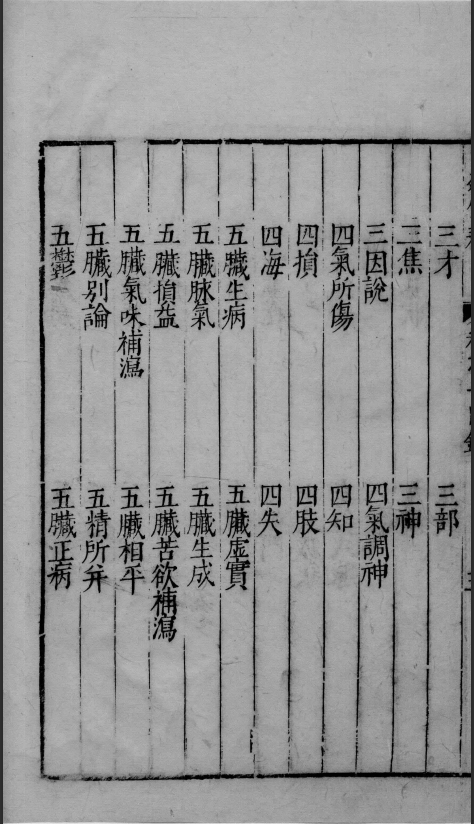 三才　三部
三焦　三神
三因說　四氣調神
四氣所傷　四知
四損　四肢
四海　四失
五臟生病　五臟虛實
五臟脉氣　五臟生成
五臟損益　五臟苦欲補瀉
五臟氣味補瀉　五臟相平
五臟別論　五精所并
五鬱　五臟正病